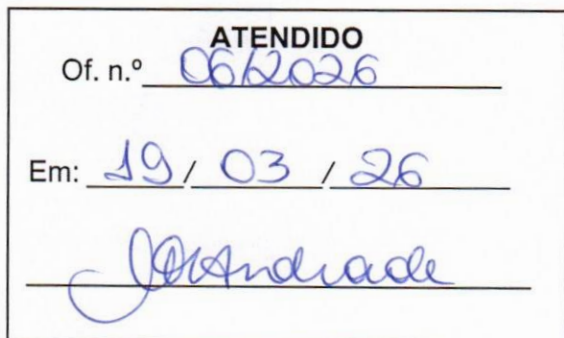 ATENDIDO
Of. n.º 06/2026
Em: 19 / 03 / 26
Andrade